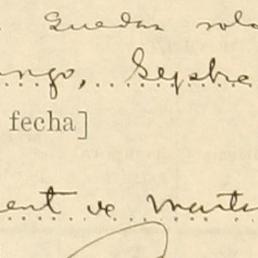 Quedan
ngo, Sepbre
fecha]
ent de Marti